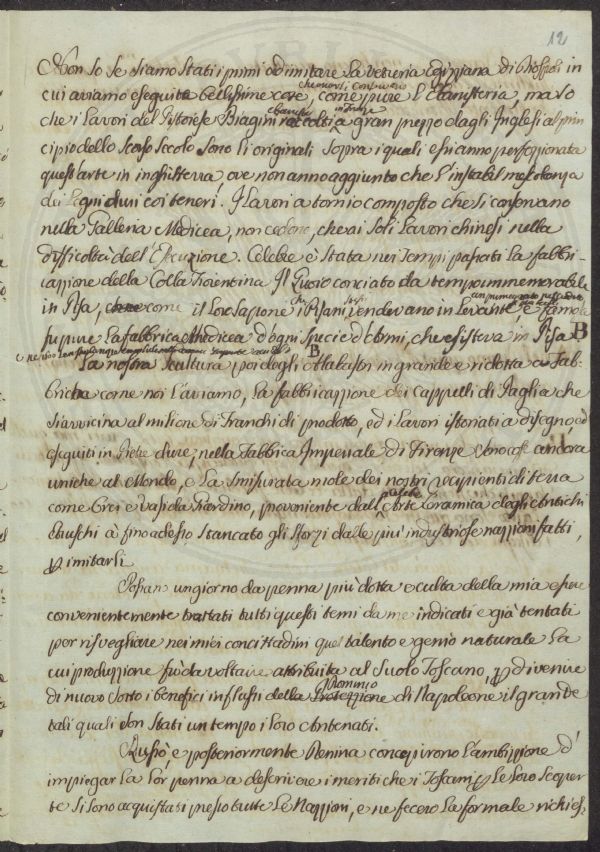 12
Non so se siamo stati i primi ad imitare la vetreria Egizziana di
cui aviamo eseguite bellissime cose, come pure l'Ebanisteria, ma so
che i lavori del Pistoiese Biagini a gran prezzo dagli Inglesi al prin
cipio dello scorso secolo sono li originali sopra i quali essi anno perfezzionata
quest'arte in inghilterra ove non anno aggiunto che l'instabil mescolanza
dei legni duri coi teneri. I lavori a tornio composto che si conservano
nella Galleria Medicea, non cedono, che ai soli lavori chinesi nella
difficoltà dell'Esecuzione. Celebre è stata nei tempi passati la fabbri-
cazzione della Colla Fiorentina Il Quoio conciato da tempo immemorabile
in Pisa, come il loro sapone i Pisani vendevano in Levante e famosa
fu pure la fabbrica Medicea d'ogni specie d'Armi, che esisteva in Pisa B
B
La nostra scultura poi degli Alabastri in grande e ridotta a Fab-
brica come noi l'aviamo, la fabbricazzione dei cappelli di Paglia che
si avvicina al milione di franchi di prodotto, ed i lavori istoriati a disegno ed
eseguiti in Pietre dure, nella Fabbrica Imperiale di Firenze sono cose ancora
uniche al Mondo, e la smisurata mole dei nostri recipienti di terra
come Orci e vasi da Giardino, proveniente dall'celebre Arte Ceramica degli Antichi
Etruschi à fino adesso stancato gli sforzi dalle più industriose nazzioni fatti,
per imitarli.
Possano un giorno da penna più dotta e culta della mia essere
convenientemente trattati tutti questi temi da me indicati e già tentati
per risvegliare nei miei concittadini quel talento e genio naturale la
cui produzzione fù da Voltaire attribuita al Suolo Toscano, per divenire
Dominio
di nuovo sotto i benefici influssi della Protezzione di Napoleone il grande
tali quali son stati un tempo i loro Antenati.
e posteriormente Denina concepirono l'ambizzione d'
impiegar la lor penna a descrivere i meriti che i Toscani per le loro scoper
te si sono acquistati presso tutte le Nazzioni, e ne fecero la formale richies-